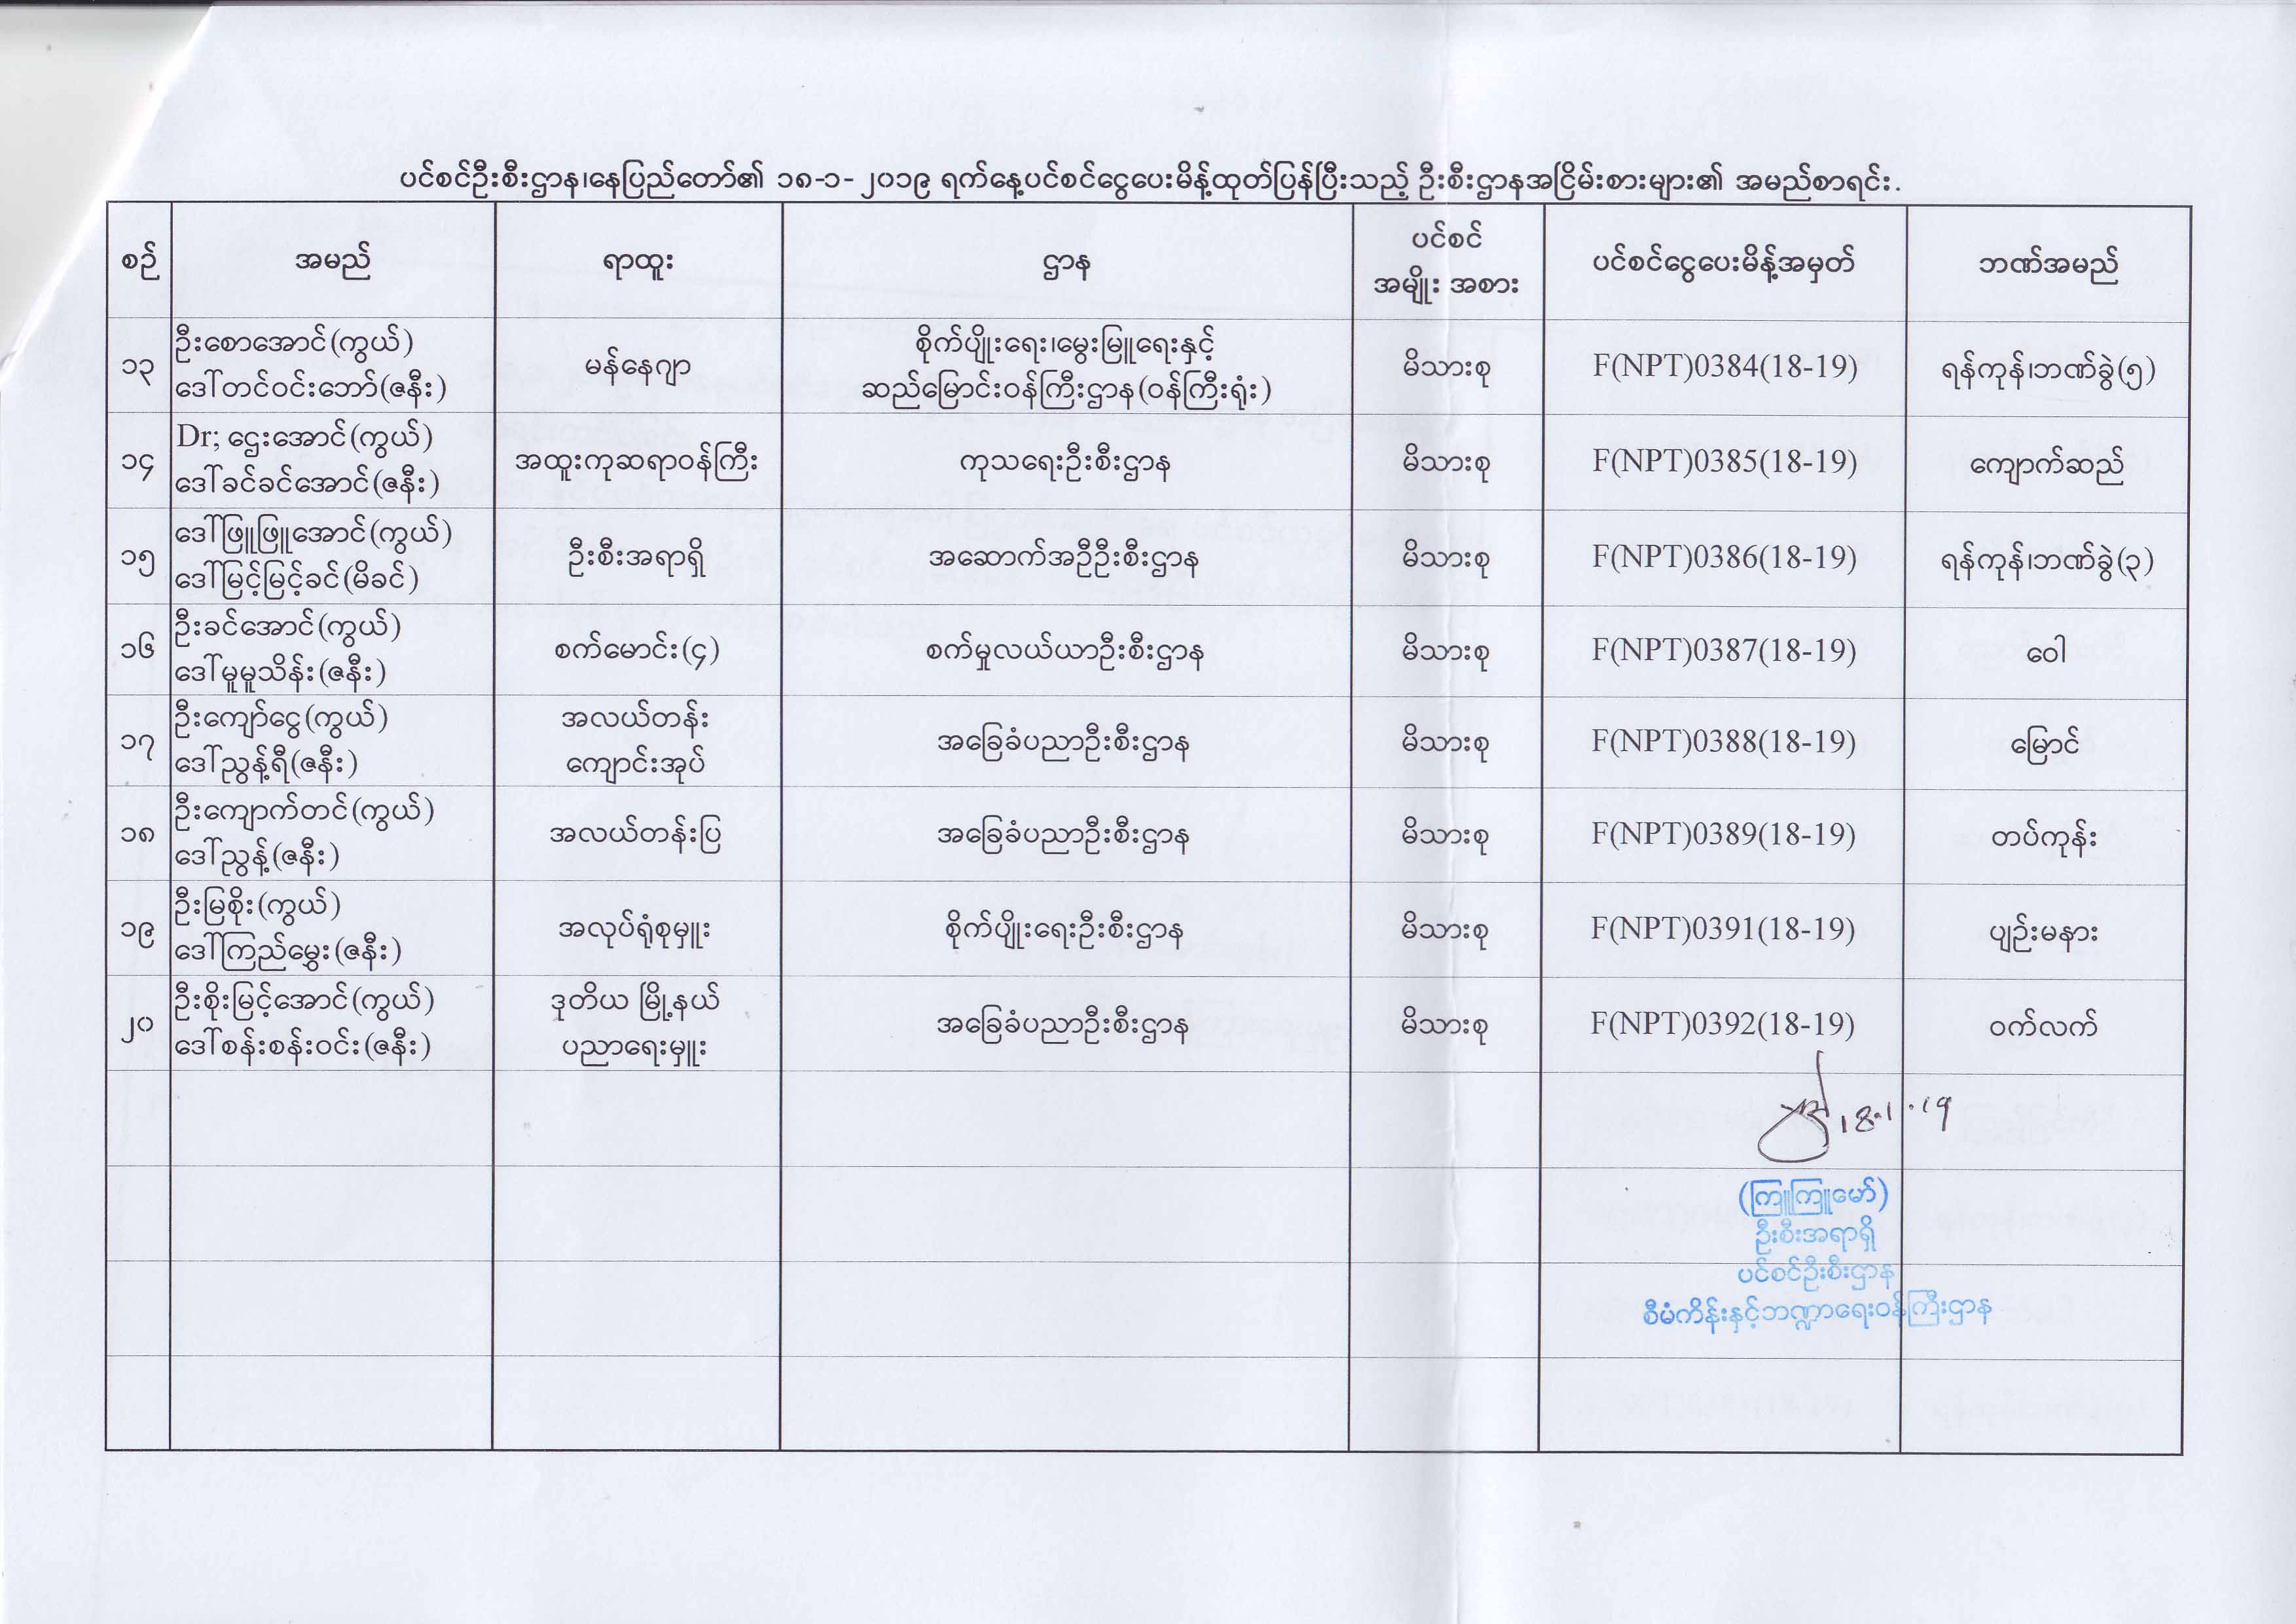 ပင်စင်ဦးစီးဌာန၊နေပြည်တော်၏ ၁၈-၁-၂၀၁၉ ရက်နေ့ပင်စင်ငွေပေးမိန့်ထုတ်ပြန်ပြီးသည့် ဦးစီးဌာနအငြိမ်းစားများ၏ အမည်စာရင်း.
စဉ် အမည် ရာထူး ဌာန ပင်စင် အမျိုး အစား ပင်စင်ငွေပေးမိန့်အမှတ် ဘဏ်အမည်
၁၃ ဦးစောအောင်(ကွယ်) မန်နေဂျာ စိုက်ပျိုးရေး၊မွေးမြူရေးနှင့် မိသားစု F(NPT)0384(18-19) ရန်ကုန်၊ဘဏ်ခွဲ(၅)
ဒေါ်တင်ဝင်းဘော်(ဇနီး) ဆည်မြောင်းဝန်ကြီးဌာန(ဝန်ကြီးရုံး)
၁၄ Dr; ဌေးအောင်(ကွယ်) အထူးကုဆရာဝန်ကြီး ကုသရေးဦးစီးဌာန မိသားစု F(NPT)0385(18-19) ကျောက်ဆည်
ဒေါ်ခင်ခင်အောင်(ဇနီး)
၁၅ ဒေါ်ဖြူဖြူအောင်(ကွယ်) ဦးစီးအရာရှိ အဆောက်အဦဦးစီးဌာန မိသားစု F(NPT)0386(18-19) ရန်ကုန်၊ဘဏ်ခွဲ(၃)
ဒေါ်မြင့်မြင့်ခင်(မိခင်)
၁၆ ဦးခင်အောင်(ကွယ်) စက်မောင်း(၄) စက်မှုလယ်ယာဦးစီးဌာန မိသားစု F(NPT)0387(18-19) ဝေါ
ဒေါ်မူမူသိန်း(ဇနီး)
၁၇ ဦးကျော်ငွေ(ကွယ်) အလယ်တန်း အခြေခံပညာဦးစီးဌာန မိသားစု F(NPT)0388(18-19) မြောင်
ဒေါ်ညွန့်ရီ(ဇနီး) ကျောင်းအုပ်
၁၈ ဦးကျောက်တင်(ကွယ်) အလယ်တန်းပြ အခြေခံပညာဦးစီးဌာန မိသားစု F(NPT)0389(18-19) တပ်ကုန်း
ဒေါ်ညွန့်(ဇနီး)
၁၉ ဦးမြစိုး(ကွယ်) အလုပ်ရုံစုမှူး စိုက်ပျိုးရေးဦးစီးဌာန မိသားစု F(NPT)0391(18-19) ပျဉ်းမနား
ဒေါ်ကြည်မွှေး(ဇနီး)
၂၀ ဦးစိုးမြင့်အောင်(ကွယ်) ဒုတိယ မြို့နယ် အခြေခံပညာဦးစီးဌာန မိသားစု F(NPT)0392(18-19) ဝက်လက်
ဒေါ်စန်းစန်းဝင်း(ဇနီး) ပညာရေးမှူး
18.1.19
(ကြူကြူမော်)
ဦးစီးအရာရှိ
ပင်စင်ဦးစီးဌာန
စီမံကိန်းနှင့်ဘဏ္ဍာရေးဝန်ကြီးဌာန